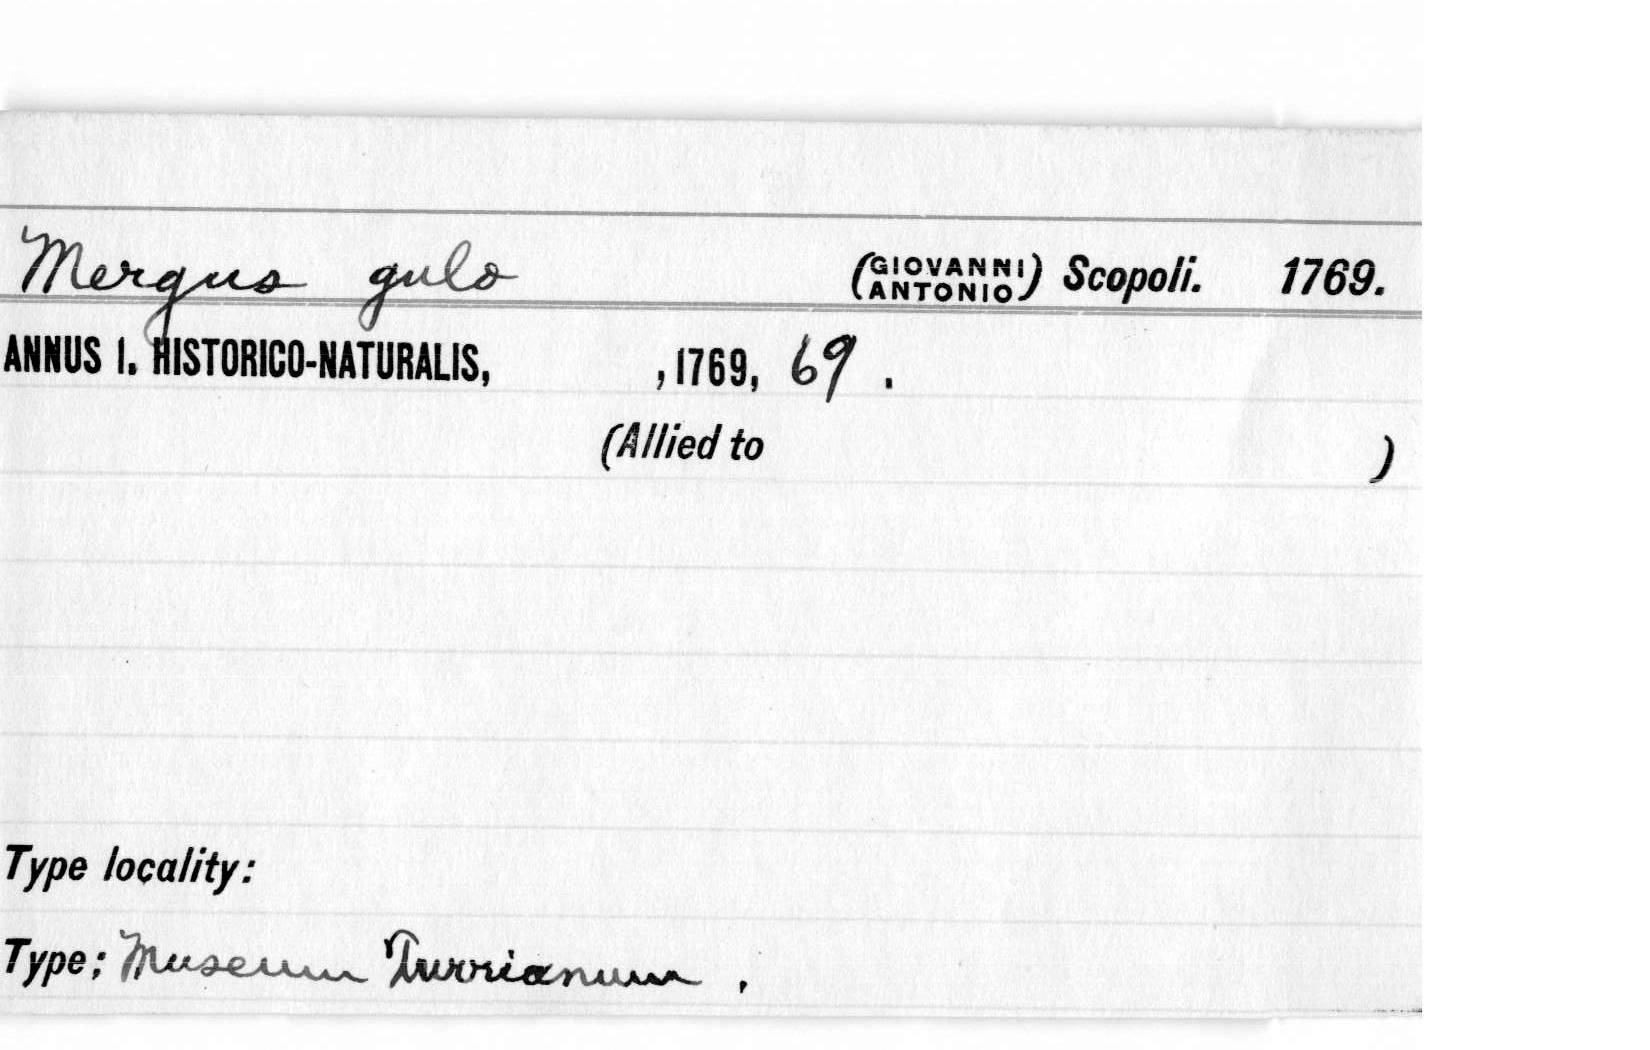 Mergus gulo (GIOVANNI ANTONIO) Scopoli. 1769.
ANNUS I. HISTORICO-NATURALIS, , 1769, 69 .
(Allied to )
Type locality:
Type; Museum Turrianum .